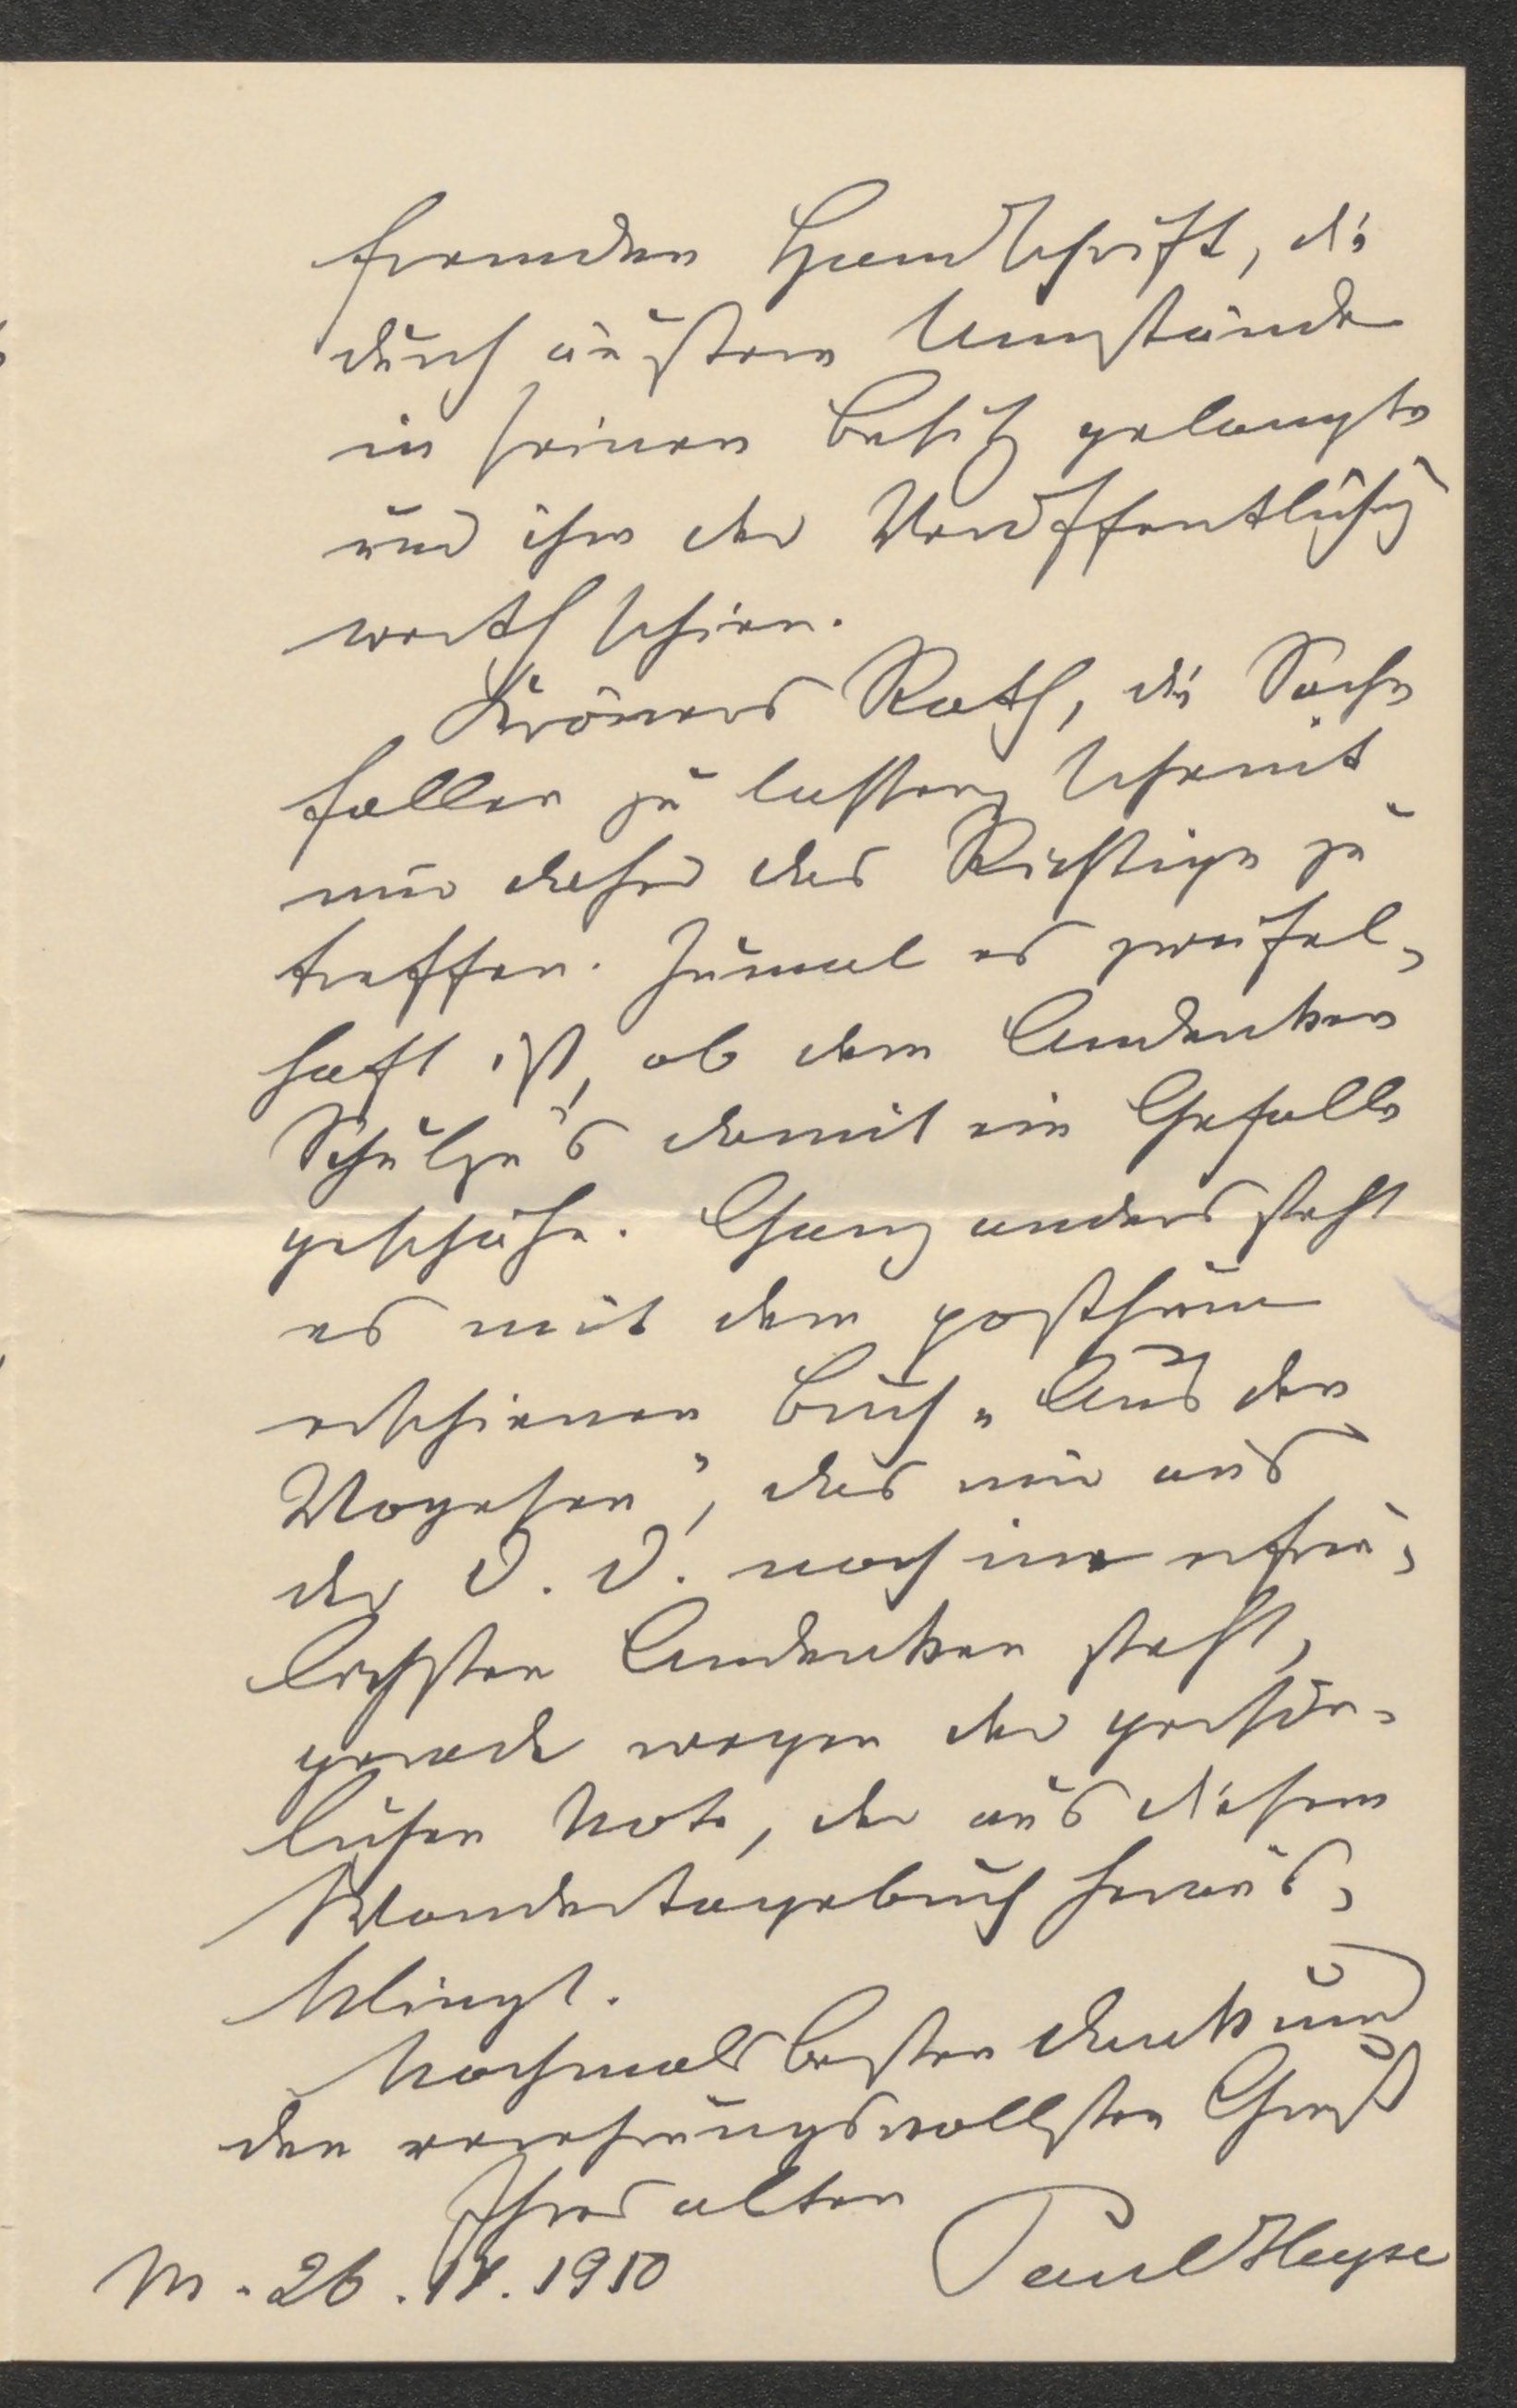 fremden Handschrift, die
durch äußere Umstände
in seinen Besitz gelangte
und ihm der Veröffentlichung
werth schien.
Kröners Rath, die Sache
fallen zu lassen, scheint
mir daher das Richtige zu
treffen. Zumal es zweifel-
haft ist, ob dem Andenken
Schulze's damit ein Gefalle
geschähe. Ganz anders steht
es mit dem posthum
erschienen Buch „Aus den
Vogesen", das mir aus
der D. D. noch im erfreu-
lichsten Andenken steht,
gerade wegen der persön-
lichen Note, die aus diesem
Wandertagebuch heraus-
klingt.
Nochmals besten Dank und
den verehrungsvollsten Gruß
Ihres alten
Paul Heyse
M. 26. 1910